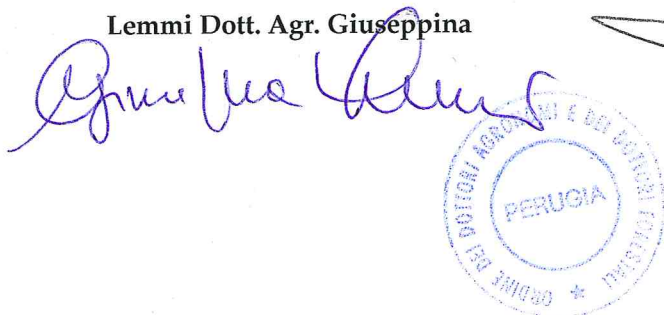 Lemmi Dott. Agr. Giuseppina
Giuseppina Lemmi
ORDINE DEI DOTTORI AGRONOMI E DEI DOTTORI FORESTALI
PERUGIA